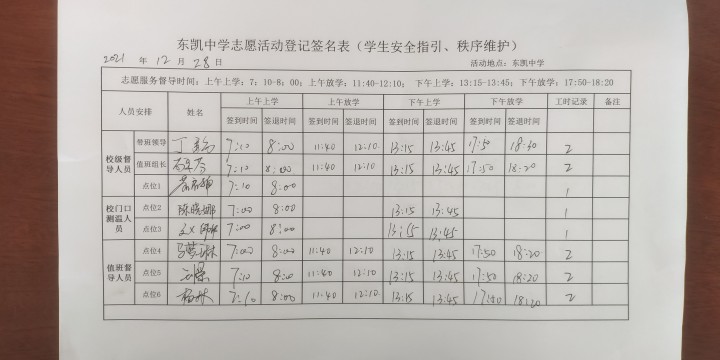 东凯中学志愿活动登记签名表（学生安全指引、秩序维护）
2021 年 12 月 28 日 活动地点：东凯中学
志愿服务督导时间：上午上学：7；10-8；00；上午放学：11:40-12:10； 下午上学：13:15-13:45；下午放学：17:50-18:20
人员安排 姓名 上午上学 上午放学 下午上学 下午放学 工时记录 备注
签到时间 签退时间 签到时间 签退时间 签到时间 签退时间 签到时间 签退时间
校级督导人员 带班领导 7:10 8:00 11:40 12:10 13:15 13:45 17:50 18:20 2
值班组长 7:10 8:00 11:40 12:10 13:15 13:45 17:50 18:20 2
点位1 7:10 8:00 1
校门口测温人员 点位2 陈晓娜 7:00 8:00 13:15 13:45 1
点位3 7:00 8:00 13:15 13:45 1
值班督导人员 点位4 7:00 8:00 11:40 12:10 13:15 13:45 17:50 18:20 2
点位5 7:10 8:00 11:40 12:10 13:15 13:45 17:50 18:20 2
点位6 杨林 7:10 8:00 11:40 12:10 13:15 13:45 17:50 18:20 2